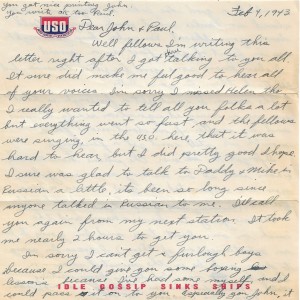 You got nice printing John
You write ok too Paul.
Feb 4, 1943
USO
Dear John & Paul,
Well fellows I'm writing this
letter right after I got thru talking to you all
It sure did make me feel good to hear all
of your voices I'm sorry I missed Helen tho
I really wanted to tell all you folks a lot
but everything went so fast and the fellows
were singing in the USO. here, that it was
hard to hear, but I did pretty good I hope.
I sure was glad to talk to Daddy & Mike in
Russian a little, its been so long since
anyone talked in Russian to me. I'll call
you again from my next station. It took
me nearly 2 hours to get you.
I'm sorry I can't get a furlough boys
because I could give you some
lessons because I've had some myself and I
could pass it on to you especially you John, it
IDLE GOSSIP SINKS SHIPS